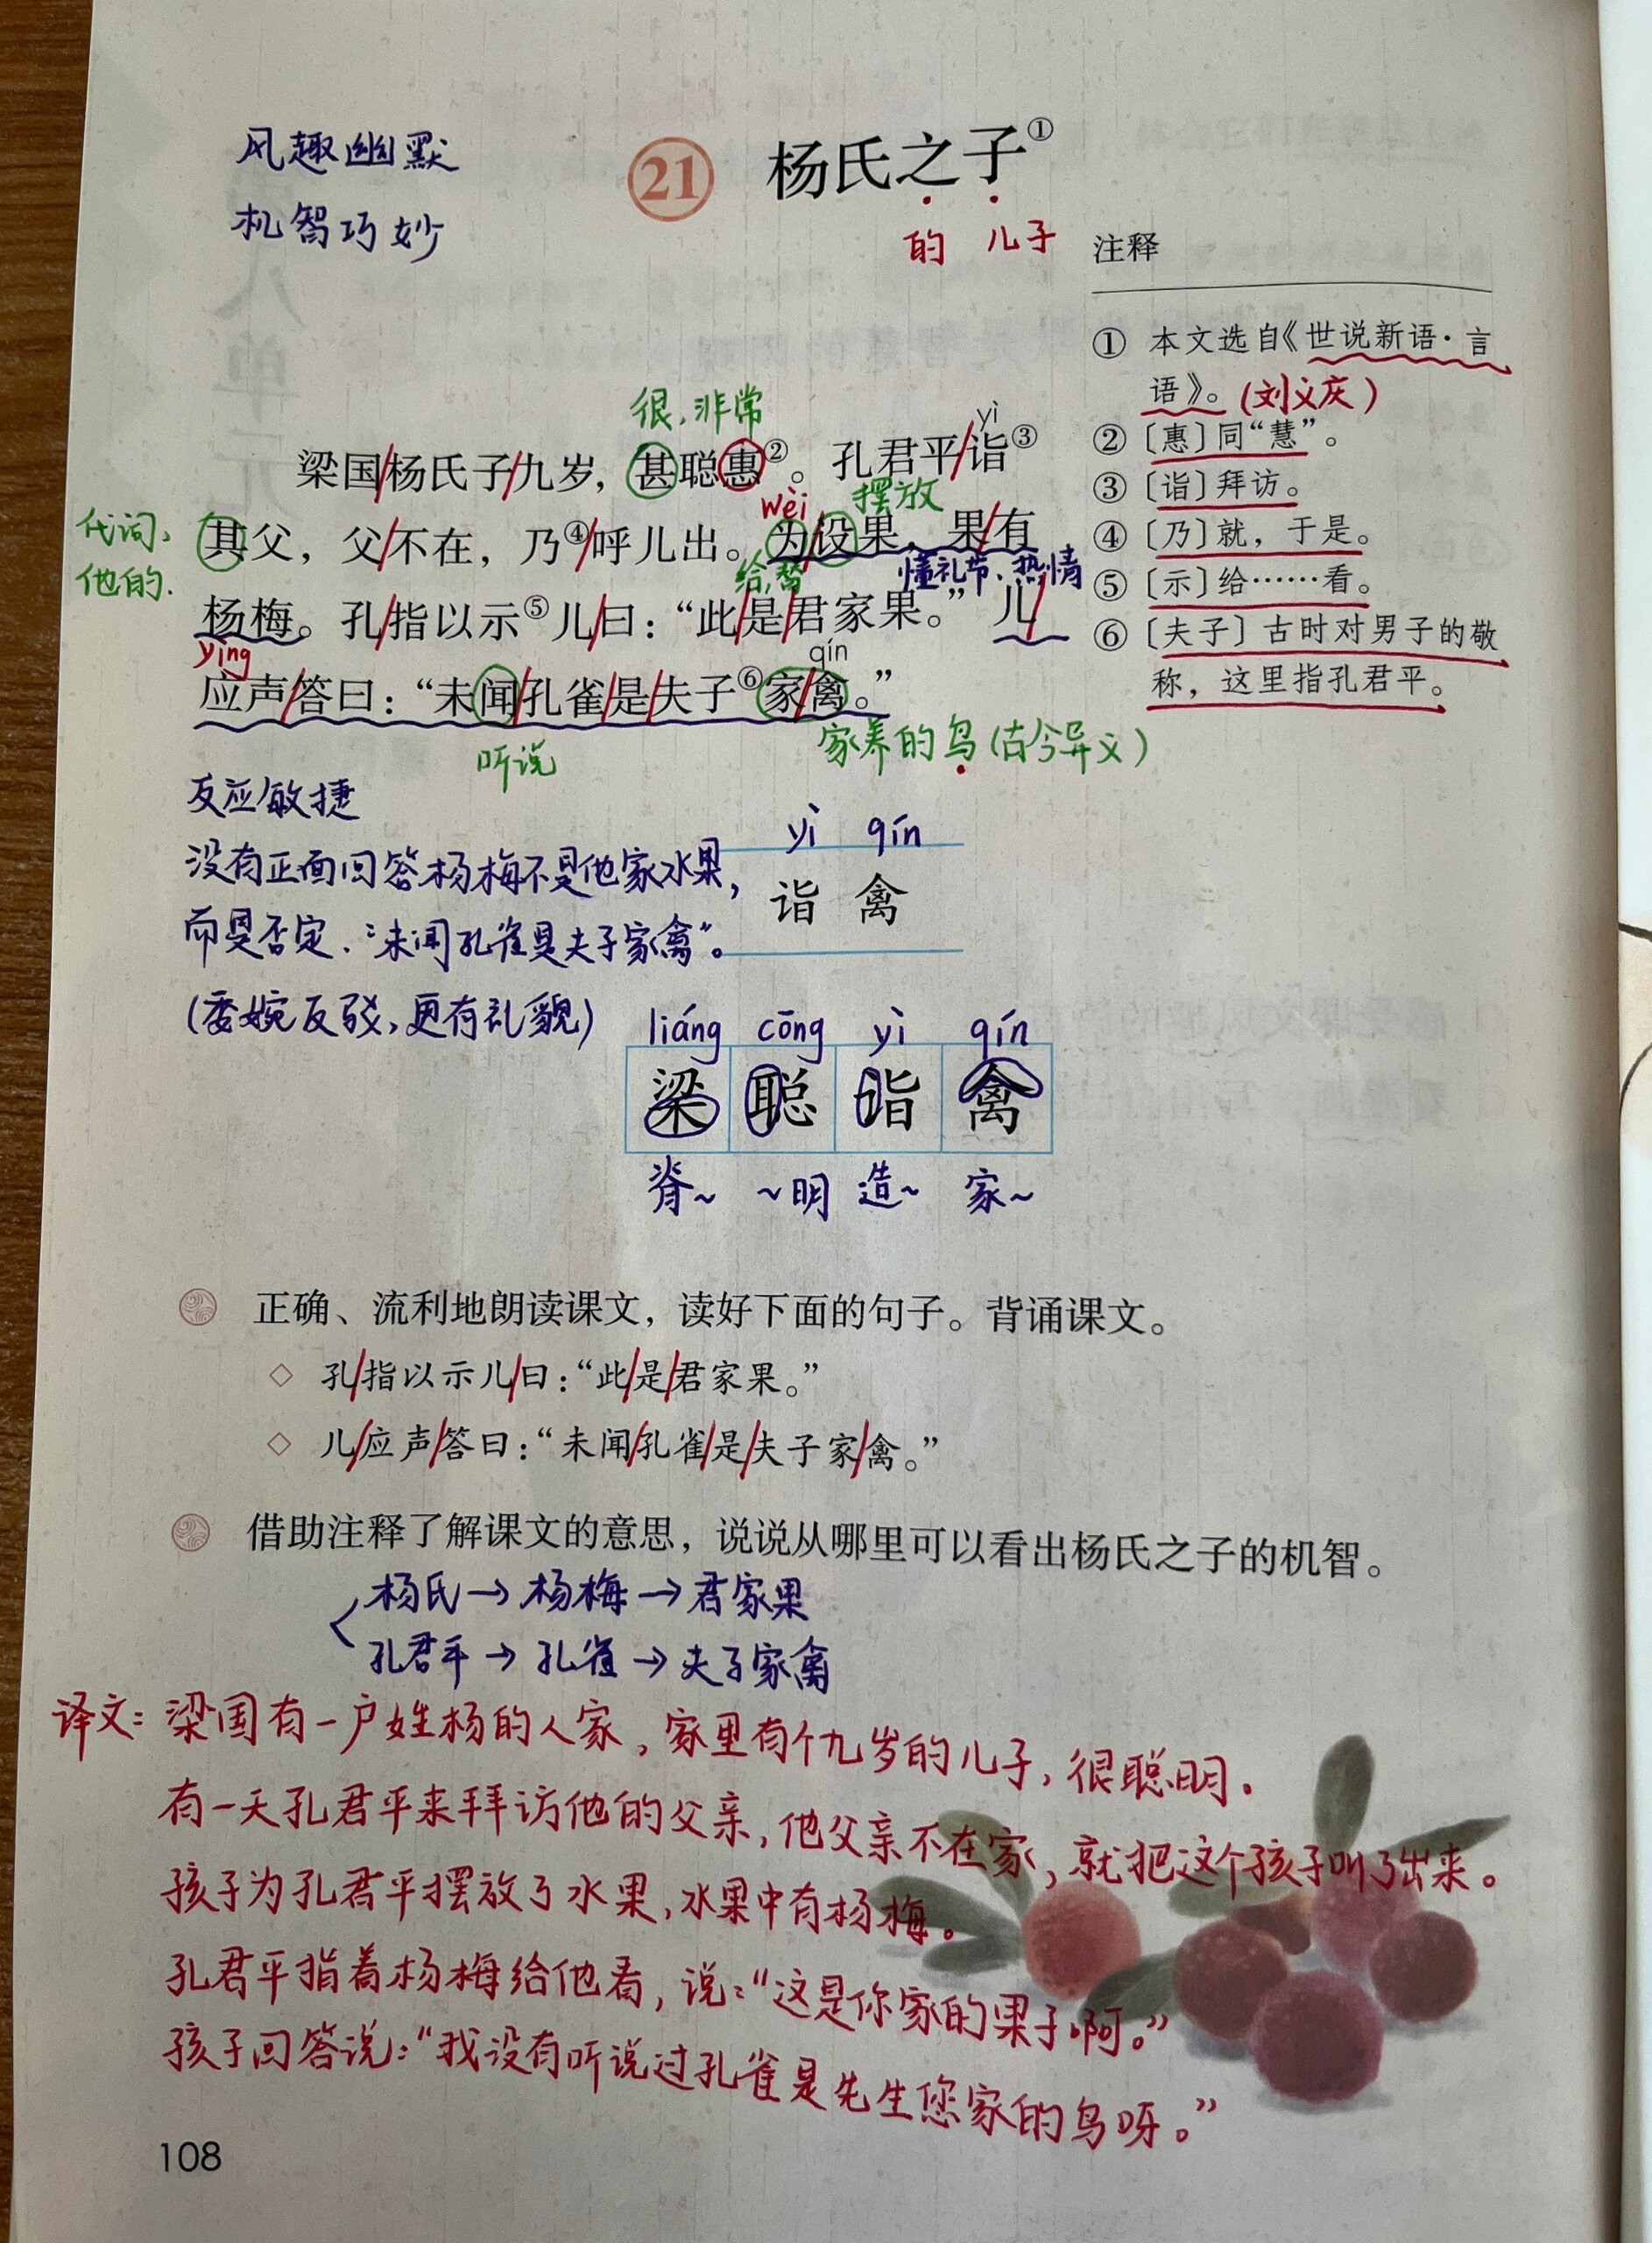 风趣幽默
机智巧妙
21 杨氏之子①
的 儿子
注释
① 本文选自《世说新语·言
语》。(刘义庆)
② 〔惠〕同“慧”。
③ 〔诣〕拜访。
④ 〔乃〕就，于是。
⑤ 〔示〕给……看。
⑥ 〔夫子〕古时对男子的敬
称，这里指孔君平。
很，非常
yì
梁国/杨氏子/九岁，甚聪惠②。孔君平/诣③
wèi 摆放
代词，
他的.
其父，父/不在，乃④/呼儿出。为/设果，果/有
给，替 懂礼节、热情
杨梅。孔/指以示⑤儿/曰：“此/是/君家果。”儿/
yìng qín
应声/答曰：“未闻/孔雀/是/夫子⑥家/禽。”
听说 家养的鸟(古今异义)
反应敏捷
没有正面回答杨梅不是他家水果，
而是否定.“未闻孔雀是夫子家禽”。
(委婉反驳，更有礼貌)
yì qín
诣 禽
liáng cōng yì qín
梁 聪 诣 禽
脊~ ~明 造~ 家~
正确、流利地朗读课文，读好下面的句子。背诵课文。
◇ 孔/指以示儿/曰：“此/是/君家果。”
◇ 儿/应声/答曰：“未闻/孔雀/是/夫子家/禽。”
借助注释了解课文的意思，说说从哪里可以看出杨氏之子的机智。
杨氏→杨梅→君家果
孔君平→孔雀→夫子家禽
译文：梁国有一户姓杨的人家，家里有个九岁的儿子，很聪明.
有一天孔君平来拜访他的父亲，他父亲不在家，就把这个孩子叫了出来。
孩子为孔君平摆放了水果，水果中有杨梅。
孔君平指着杨梅给他看，说：“这是你家的果子啊。”
孩子回答说：“我没有听说过孔雀是先生您家的鸟呀。”
108